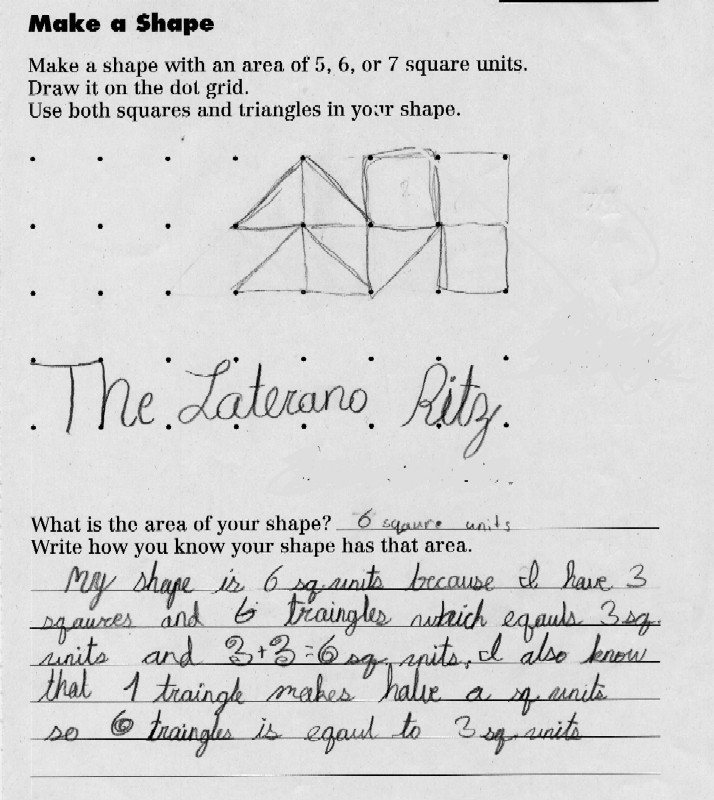 Make a Shape
Make a shape with an area of 5, 6, or 7 square units.
Draw it on the dot grid.
Use both squares and triangles in your shape.
The Laterano Ritz
What is the area of your shape? 6 sqaure units
Write how you know your shape has that area.
My shape is 6 sq. units because I have 3
sqaures and 6 traingles which eqauls 3 sq.
units and 3+3=6 sq. units, I also know
that 1 traingle makes halve a sq. units
so 6 traingles is eqaul to 3 sq. units